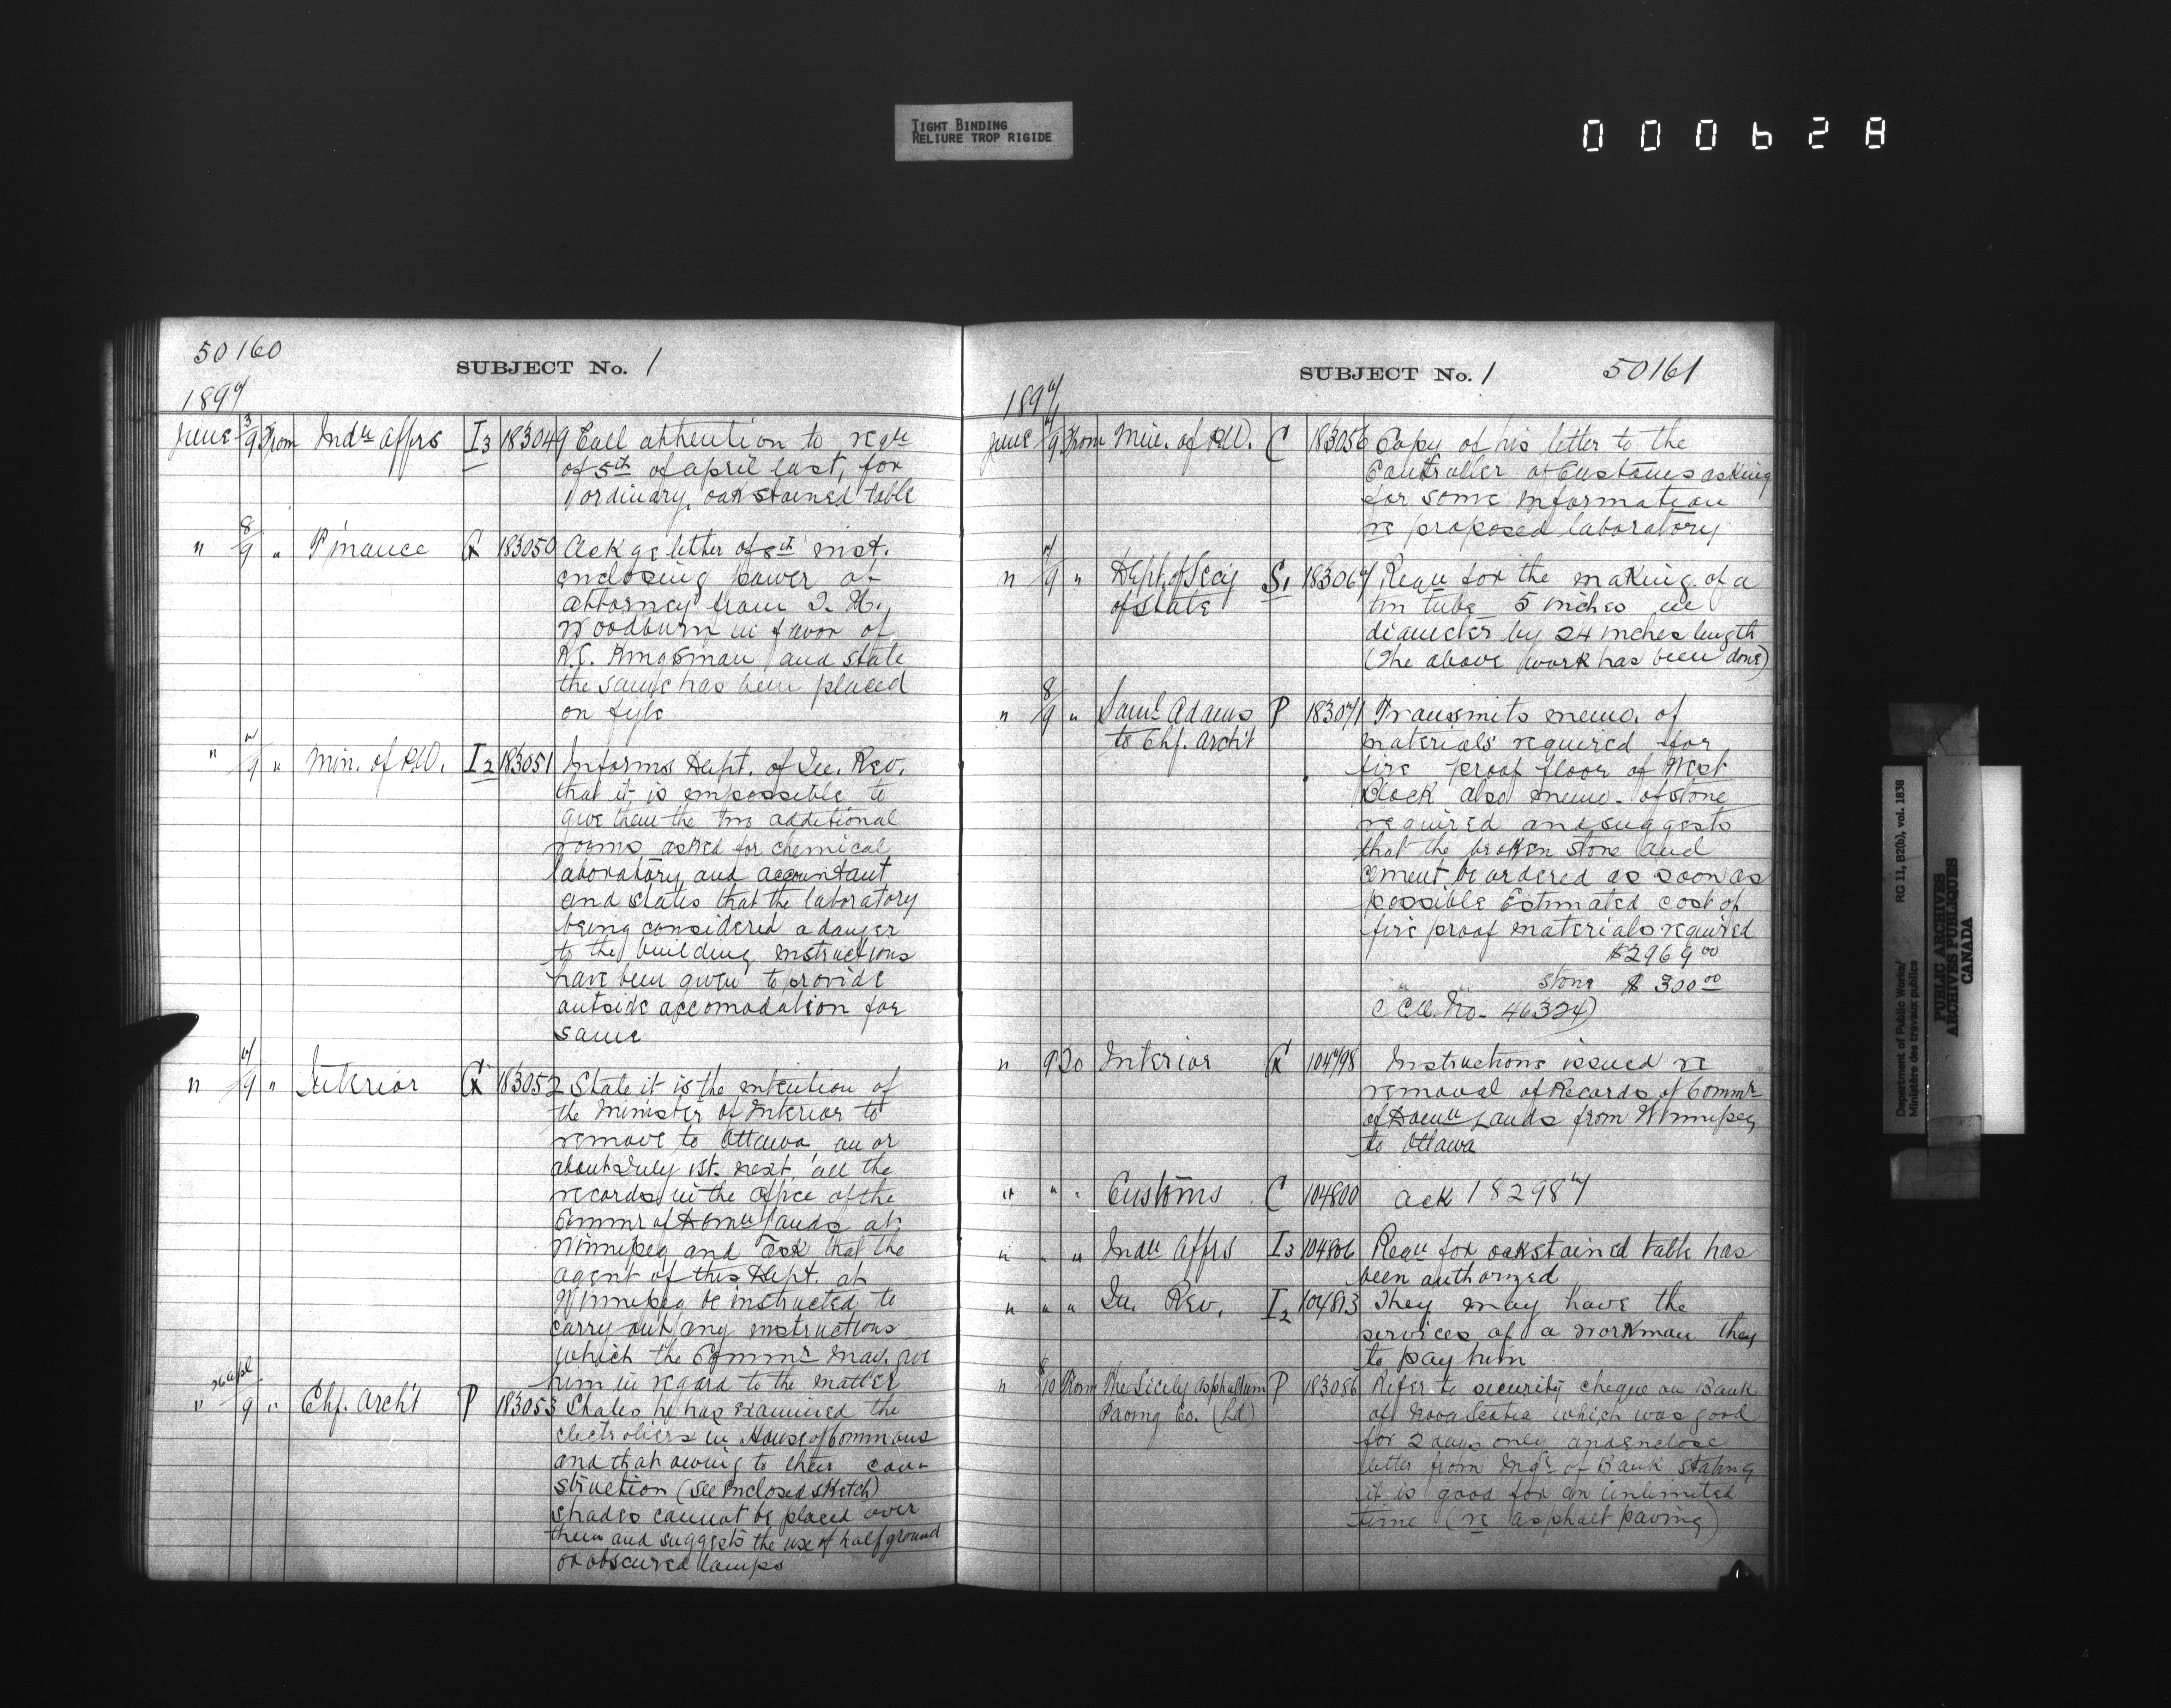 TIGHT BINDING
RELIURE TROP RIGIDE
000628
50160
SUBJECT No. 1
1897
June 3/9 From Indn Affrs I3 183049 Call attention to reqn
of 5th of April last, for
1 ordinary, oak stained table
" 8/9 " Finance G 183050 Ackge letter of 8th inst.
enclosing power of
attorney from T. H.
Woodburn in favor of
R.C. Kingsman and state
the same has been placed
on fyle
" 7/9 " Min. of P.W. I2 183051 Informs Dept. of In. Rev.
that it is impossible to
give them the two additional
rooms asked for chemical
laboratory and accountant
and states that the laboratory
being considered a danger
to the building instructions
have been given to provide
outside accomodation for
same
" 7/9 " Interior G 183052 State it is the intention of
the Minister of Interior to
remove to Ottawa, on or
about July 1st. next, all the
records in the office of the
Commr of Domn Lands at
Winnipeg and ask that the
agent of this Dept. at
Winnipeg be instructed to
carry out any instructions
which the Commr may give
him in regard to the matter
" 26 apl/9 " Chf. Archt P 183053 States he has examined the
electroliers in House of Commons
and that owing to their con-
struction (see enclosed sketch)
shades cannot be placed over
them and suggests the use of half ground
or obscured lamps
SUBJECT No. 1 50161
1897
June 7/9 From Min. of P.W. C 183056 Copy of his letter to the
Controller of Customs asking
for some information
re proposed laboratory
" 7/9 " Dept. of Secy S1 183067 Reqn for the making of a
of State tin tube 5 inches in
diameter by 24 inches length
(The above work has been done)
" 8/9 " Saml Adams P 183071 Transmits memo. of
to Chf. Archt materials required for
fire proof floor of West
Block also memo. of stone
required and suggests
that the broken stone and
cement be ordered as soon as
possible Estimated cost of
fire proof materials required
$2969 00
" " stone $ 300 00
No. 46324)
" 9 Do Interior G 104798 Instructions issued re
removal of Records of Commr
of Domn Lands from Winnipeg
to Ottawa
" " " Customs C 104800 Ack 182987
" " " Indn Affrs I3 104806 Reqn for oak stained table has
been authorized
" " " In. Rev. I2 104813 They may have the
services of a workman they
to pay him
" 8/10 From The Sicily Asphaltum P 183086 Refer to security cheque on Bank
Paving Co. (Ld) of Nova Scotia which was good
for 2 days only and enclose
letter from Mgr of Bank stating
it is good for an unlimited
time (re asphalt paving)
Department of Public Works/ RG 11, B2(b), vol. 1838
Ministère des travaux publics
PUBLIC ARCHIVES
ARCHIVES PUBLIQUES
CANADA